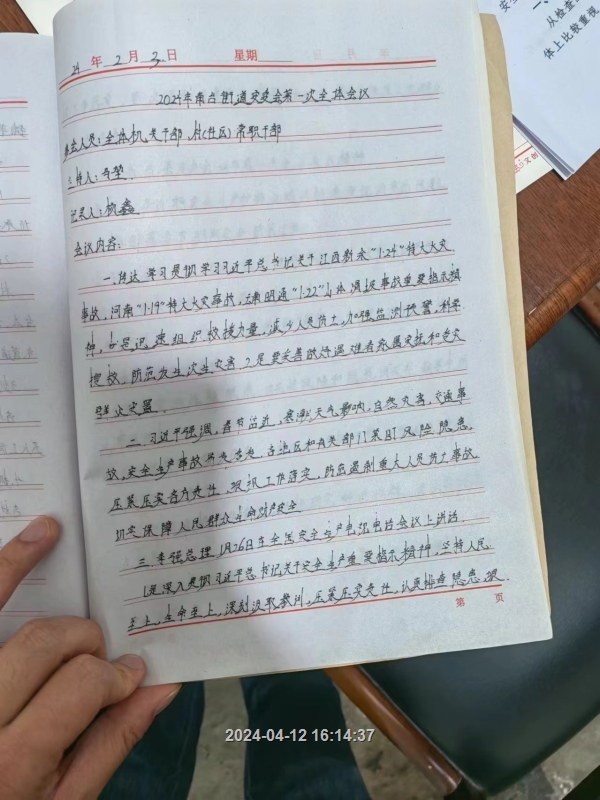 安
一、
从检查
体上比较重视
24 年 2 月 3 日 星期
2024年南台街道安委会第一次全体会议
参会人员:全体机关干部、村(社区)常职干部
主持人:
记录人:
会议内容:
一、传达学习贯彻学习习近平总书记关于江西新余"1·24"特大火灾
事故,河南"1·19"特大火灾事故,云南昭通"1·22"山体滑坡事故重要指示精
神,组织救援力量,减少人员伤亡,加强监测预警,科学
搜救,防范发生次生灾害,2是要妥善做好遇难者家属安抚和受灾
群众安置。
二、习近平强调,春节临近,寒潮天气影响,自然灾害,交通事
故,安全生产事故易发多发,各地区和有关部门紧盯风险隐患,
压紧压实各方责任,狠抓工作落实,防范遏制重大人员伤亡事故
切实保障人民群众生命财产安全
三、李强总理1月26日在全国安全生产电视电话会议上讲话.
1是深入贯彻习近平总书记关于安全生产重要指示精神,坚持人民
至上,生命至上,深刻汲取教训,压紧压实责任,认真排查隐患,狠
第 页
2024-04-12 16:14:37